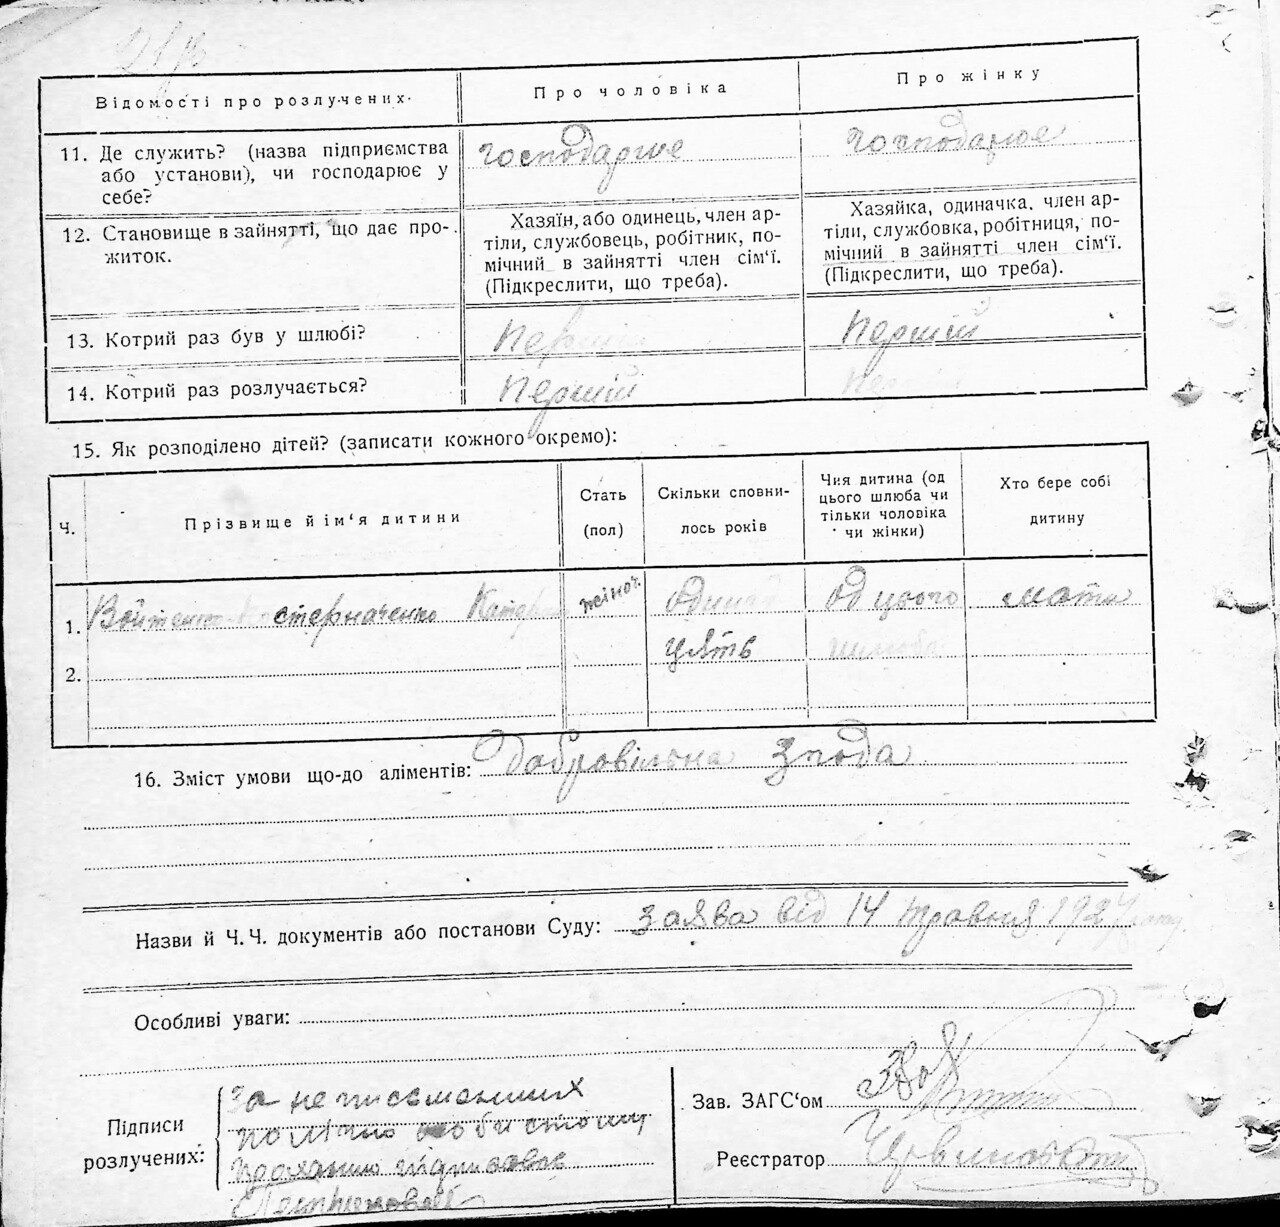 Відомості про розлучених.
Про чоловіка
Про жінку
11. Де служить? (назва підприємства
або установи), чи господарює у
себе?
господарює
господарює
12. Становище в зайнятті, що дає про-
житок.
Хазяїн, або одинець, член ар-
тіли, службовець, робітник, по-
мічний в зайнятті член сім‘ї.
(Підкреслити, що треба).
Хазяйка, одиначка, член ар-
тіли, службовка, робітниця, по-
мічний в зайнятті член сім‘ї.
(Підкреслити, що треба).
13. Котрий раз був у шлюбі?
Перший
Перший
14. Котрий раз розлучається?
Перший
15. Як розподілено дітей? (записати кожного окремо):
Ч.
Прізвище й ім‘я дитини
Стать
(пол)
Скільки сповни-
лось років
Чия дитина (од
цього шлюба чи
тільки чоловіка
чи жінки)
Хто бере собі
дитину
1.
Катерина
жіноч.
одинад
цять
од цього
шлюба
мати
2.
16. Зміст умови що-до аліментів: Добровільна згода
Назви й Ч.Ч. документів або постанови Суду: заява від 14 травня 1927 року
Особливі уваги:
Підписи
розлучених:
За неписьменних
особистому
проханню підписався
Зав. ЗАГС‘ом
Реєстратор